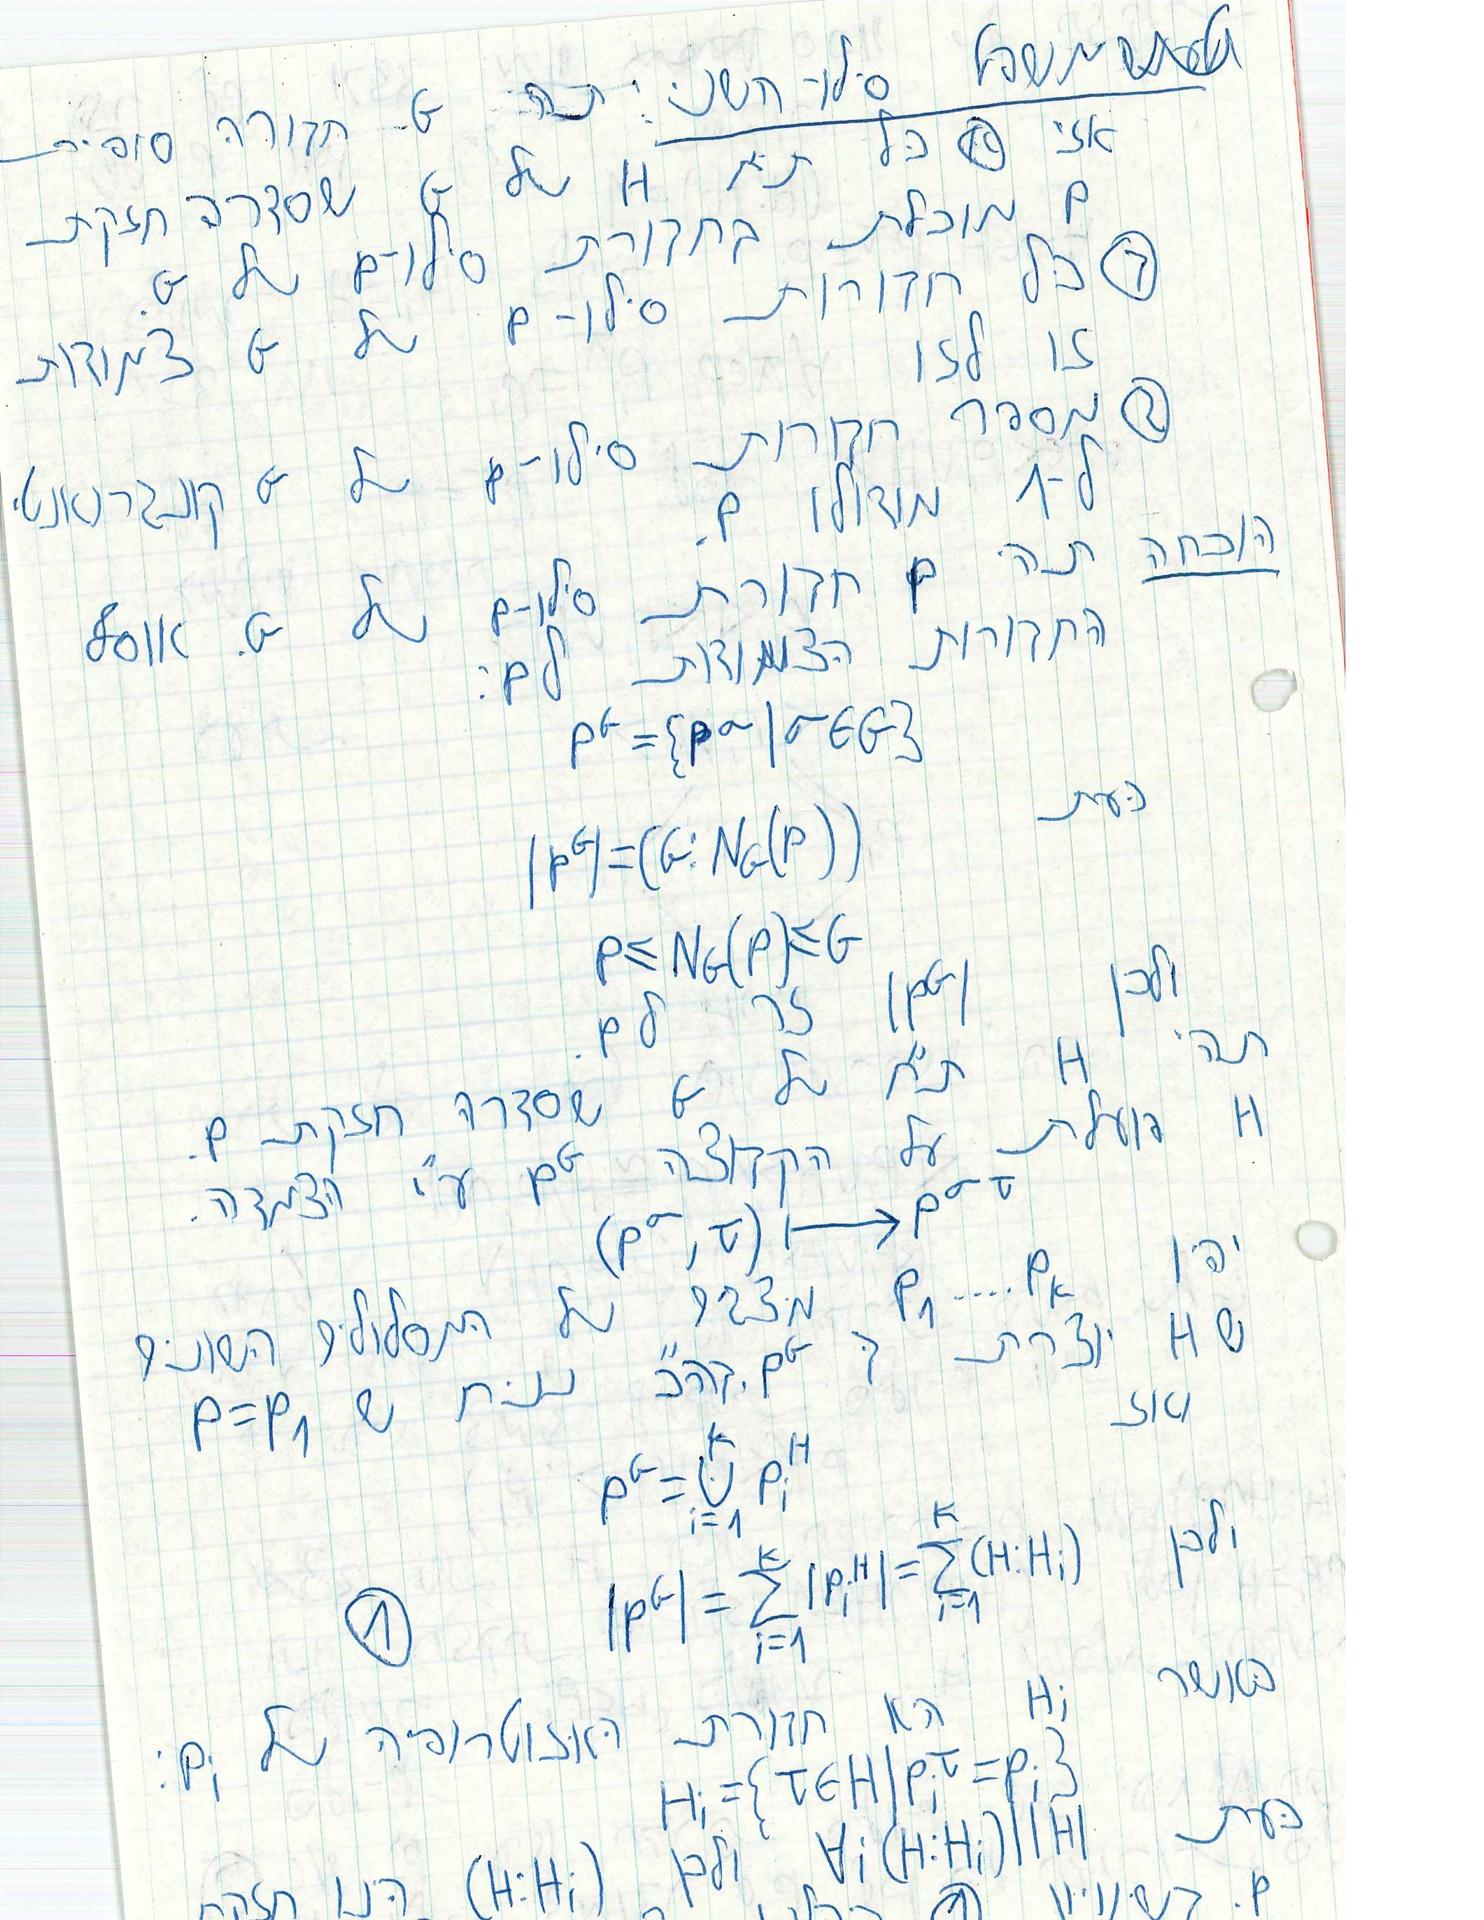 משפט סילו השני: תהי G חבורה סופית
אזי (א) כל ת"ח H של G שסדרה חזקת
p מוכלת בחבורת סילו-p של G.
(ב) כל חבורות סילו-p של G צמודות
זו לזו
(ג) מספר חבורות סילו-p של G קונגרואנטי
ל-1 מודולו p.
הוכחה תהי P חבורת סילו-p של G. אוסף
החבורות הצמודות לP:
P^G={P^σ|σ∈G}
כעת
|P^G|=(G:N_G(P))
P≤N_G(P)≤G
ולכן |P^G| זר לp.
תהי H ת"ח של G שסדרה חזקת p.
H פועלת על הקבוצה P^G ע"י הצמדה.
(P^σ,τ)↦P^{στ}
יהיו P_1.....P_k נציגים של המסלולים השונים
שH יוצרת ב P^G. בה"כ נניח ש P=P_1
ואז
P^G=⋃_{i=1}^k P_i^H
ולכן |P^G|=∑_{i=1}^k|P_i^H|=∑_{i=1}^k(H:H_i) ①
כאשר H_i היא חבורת האיזוטרופיה של P_i:
H_i={τ∈H|P_i^τ=P_i}
כעת ∀i(H:H_i)||H| ולכן (H:H_i) הינו חזקת
p. בשוויון ①